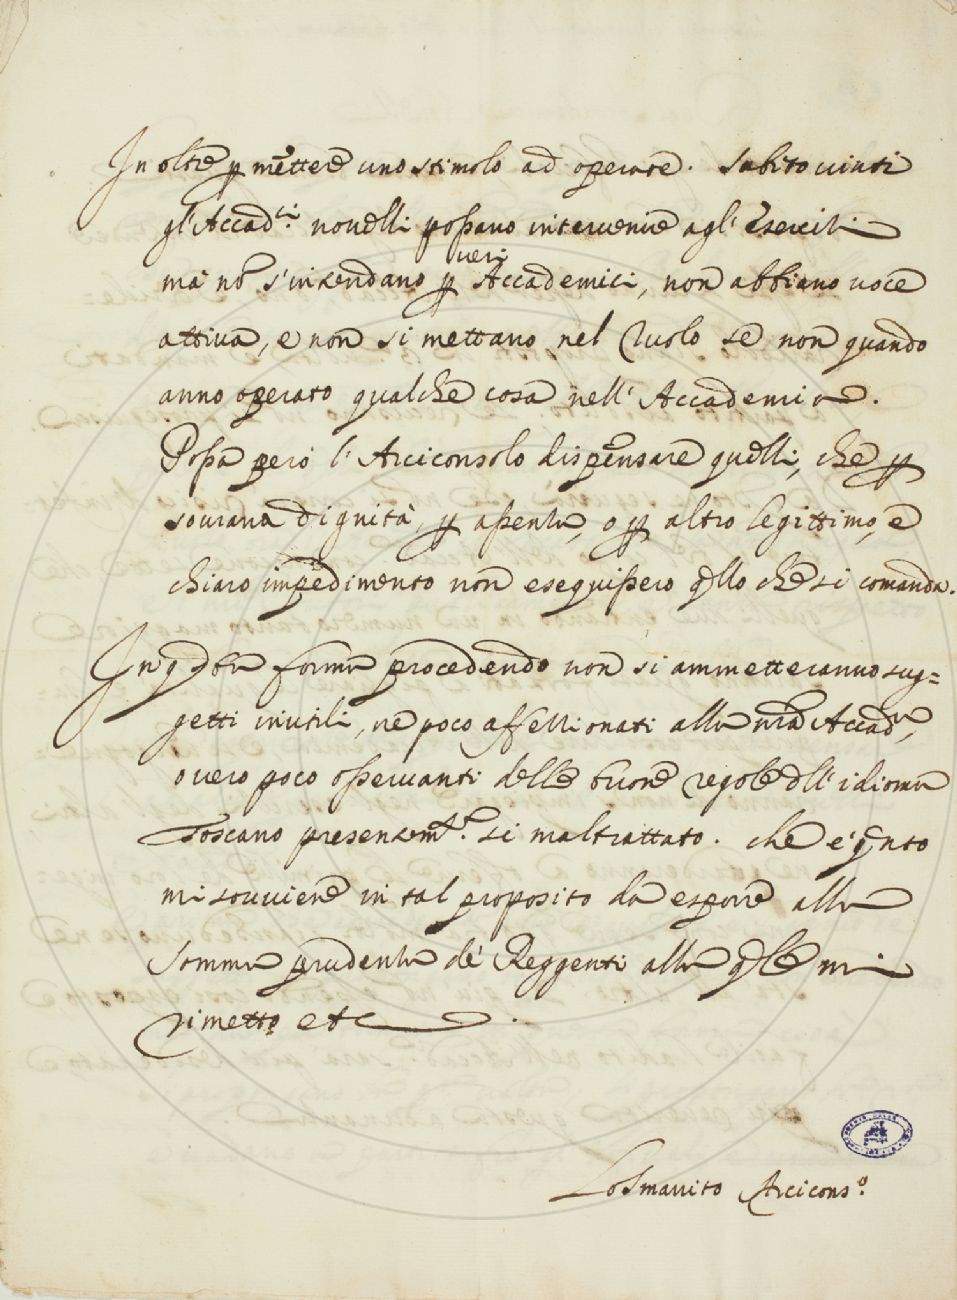 In oltre p mettere uno stimolo ad operare. Subito vinti
gl'Accad.ci novelli possano intervenire agl'Esercitii
ma nō s'intendano p veri Accademici, non abbiano voce
attiva, e non si mettano nel Ruolo se non quando
anno operato qualche cosa nell'Accademia.
Possa però l'Arciconsolo dispensare quelli, che p
sovrana dignità, p assentia, o p altro legittimo, e
chiaro impedimento non eseguissero qllo che si comanda.
In forma procedendo non si ammetteranno sug=
getti inutili, ne poco affettionati alla nrā Accad.a,
overo poco osservanti delle buone regole dll'idioma
Toscano presentem.te si maltrattato. che è qnto
mi sovviene in tal proposito da esporre alla
somma prudentia de' Reggenti alla qle mi
rimetto etc.
Arcicons.o